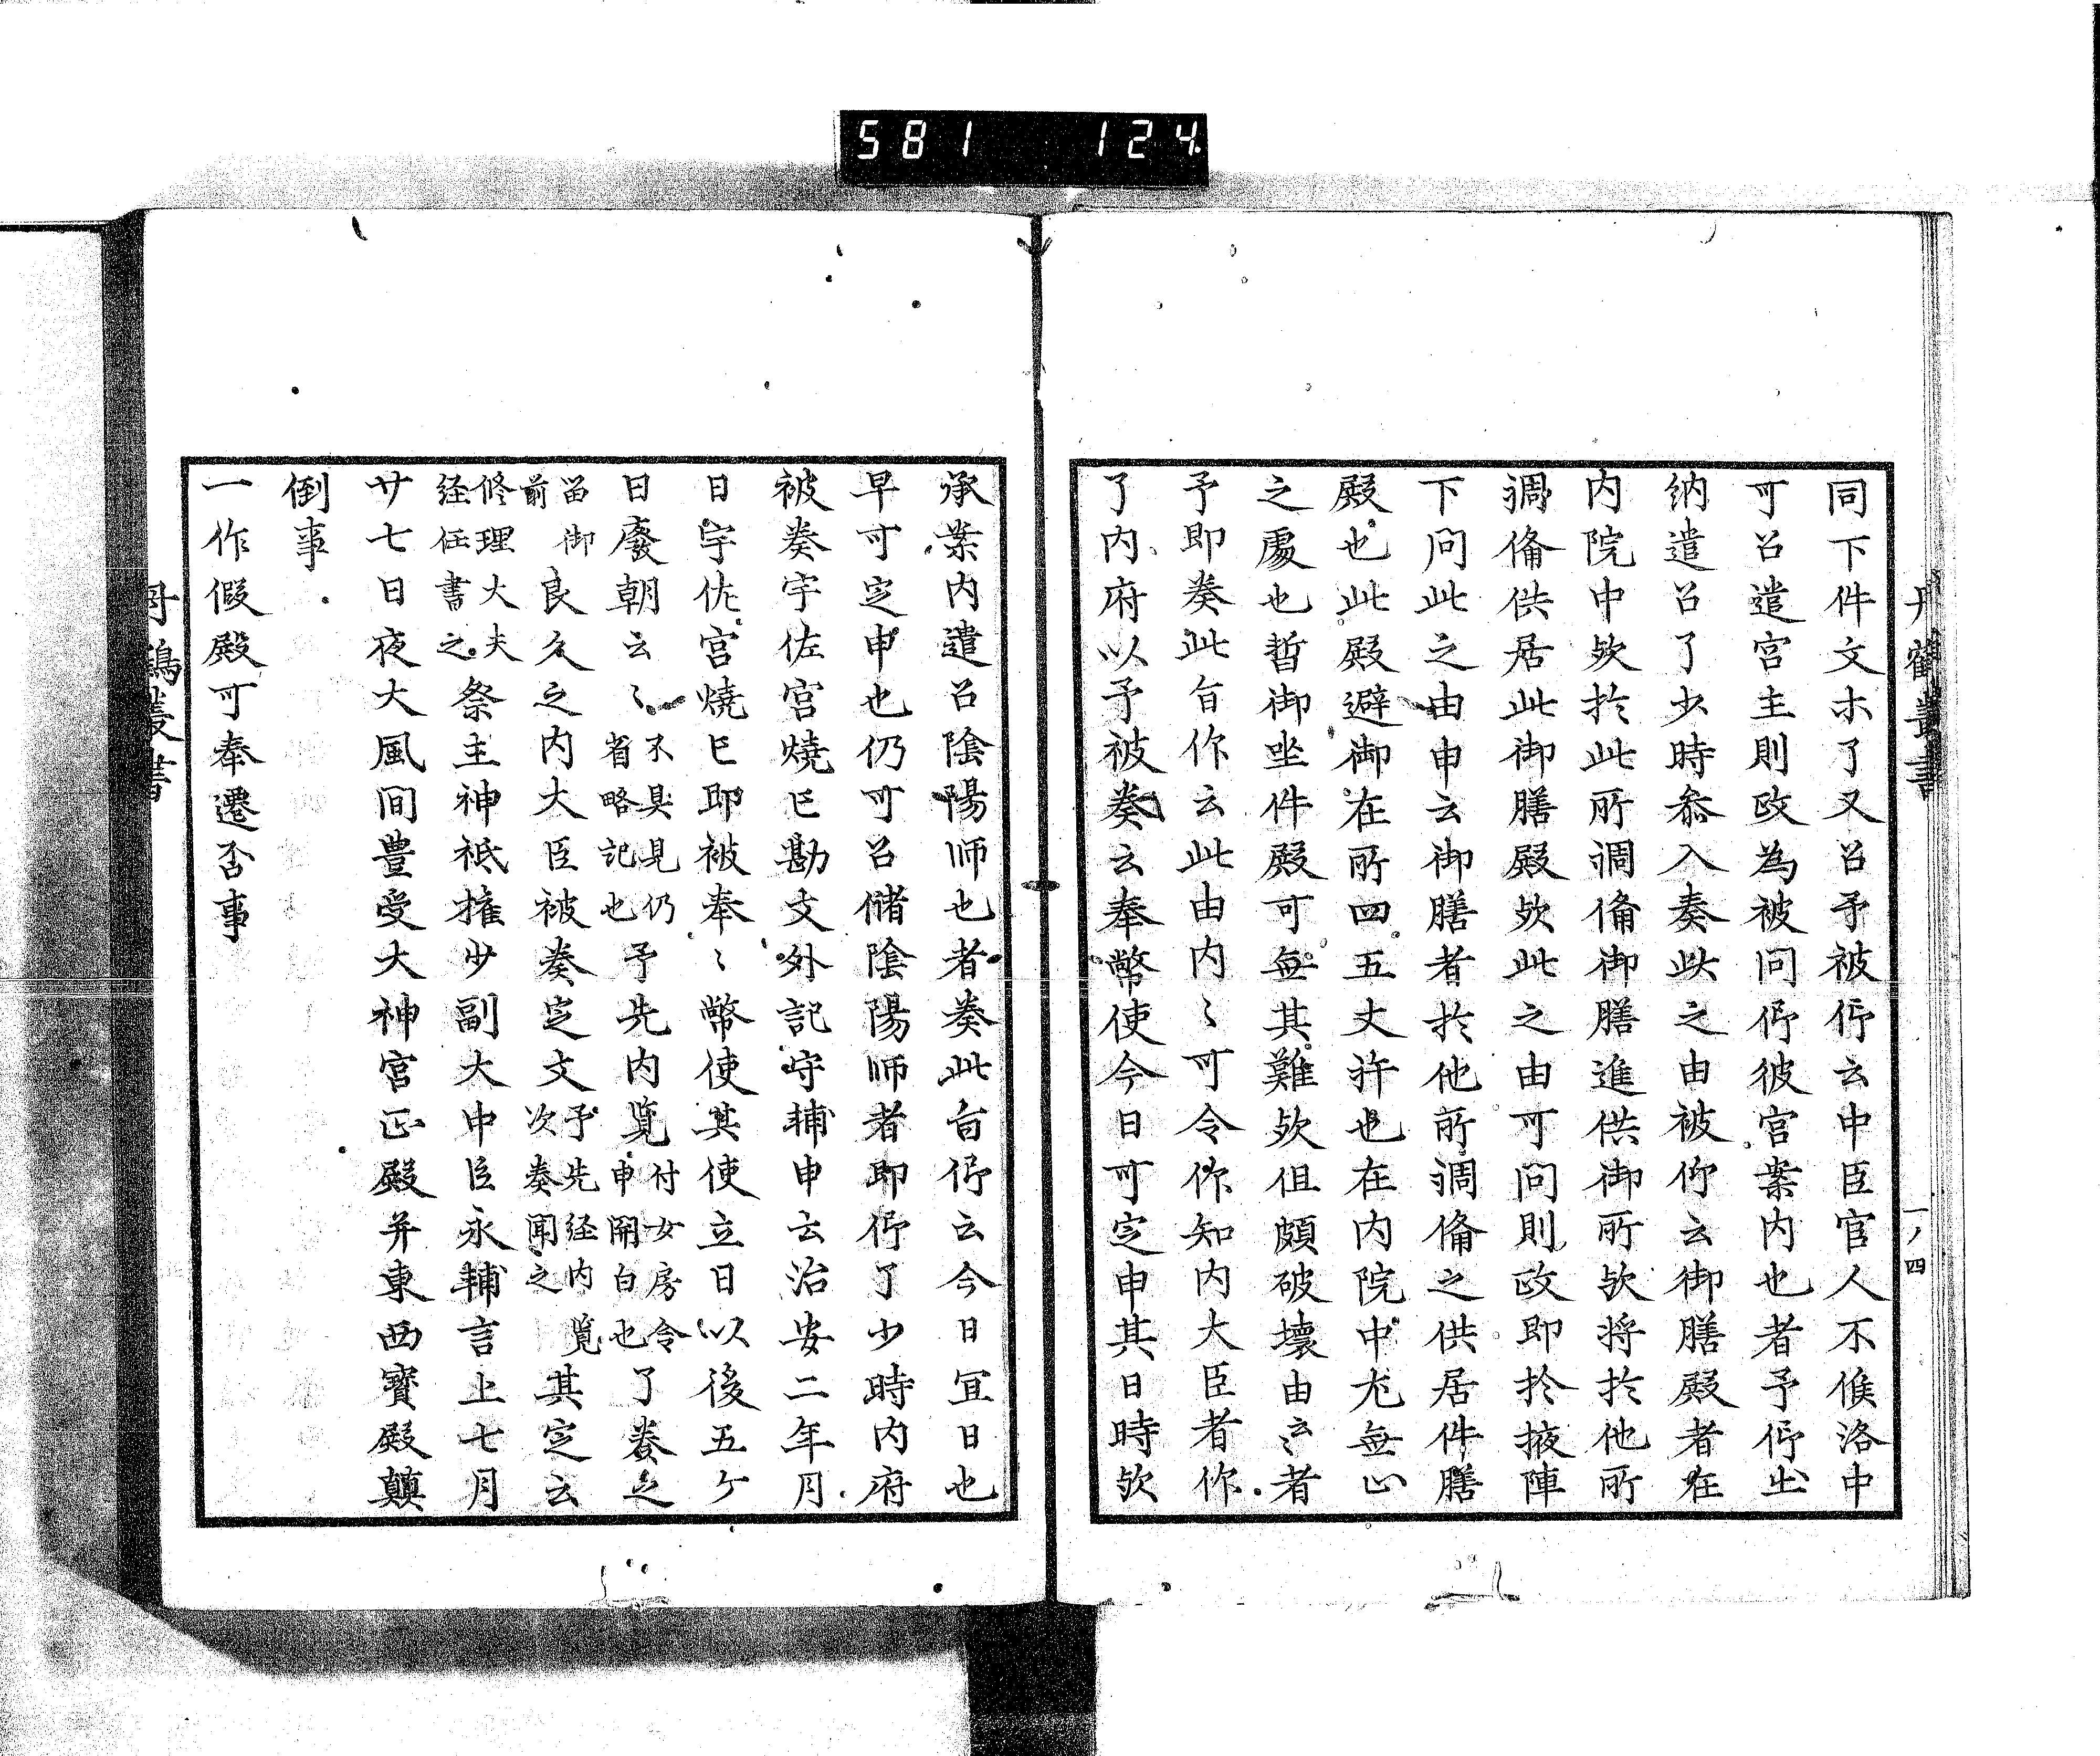 581 124
丹鶴叢書
一ノ四
同下件文ホ了又召予被仰云中臣官人不候洛中
可召遣宮主則政為被問仰彼宮案内也者予仰出
納遣召了少時叅入奏此之由被仰云御膳殿者在
内院中欤於此所調備御膳進供御所欤将於他所
調備供居此御膳殿欤此之由可問則政即於掖陣
下問此之由申云御膳者於他所調備之供居件膳
殿也此殿避御在所四五丈許也在内院中尤無止
之處也暫御坐件殿可無其難欤但頗破壊由云々者
予即奏此旨作云此由内々可令作知内大臣者作
了内府以予被奏云奉幣使今日可定申其日時欤
承案内遣召陰陽师也者奏此旨仰云今日冝日也
早可定申也仍可召儲陰陽师者即仰了少時内府
被奏宇佐宮燒亡勘文外記守輔申云治安二年月
日宇佐宮燒亡即被奉々幣使其使立日以後五ケ
日廢朝云々不具見仍省略記也予先内覧付女房令申關白也了奏之
留御前良久之内大臣被奏定文予先経内覧次奏聞之其定云
修理大夫経任書之祭主神祇権少副大中臣永輔言上七月
廿七日夜大風间豊受大神宮正殿并東西寳殿顛
倒事
一作假殿可奉遷否事
丹鶴叢書